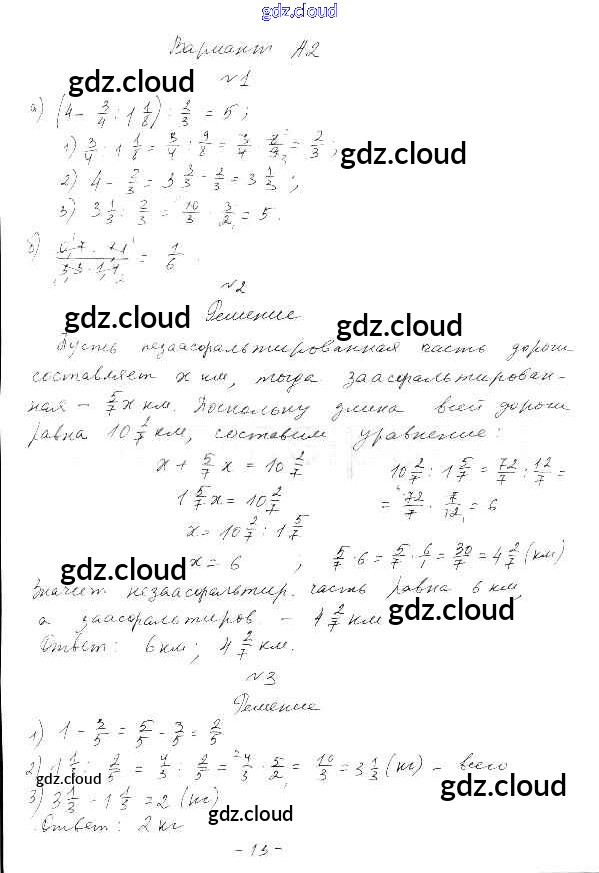 gdz.cloud
Вариант А2
gdz.cloud
№1
а) (4 - 3/4 : 1 1/8) : 2/3 = 5;
1) 3/4 : 1 1/8 = 3/4 : 9/8 = 3/4 · 8/9 = 2/3;
gdz.cloud
2) 4 - 2/3 = 3 3/3 - 2/3 = 3 1/3;
3) 3 1/3 : 2/3 = 10/3 · 3/2 = 5.
gdz.cloud
б) = 1/6.
№2
Решение
gdz.cloud gdz.cloud
Пусть незаасфальтированная часть дороги
составляет x км, тогда заасфальтирован-
ная - 5/7 x км. Поскольку длина всей дороги
равна 10 2/7 км, составим уравнение:
x + 5/7 x = 10 2/7 10 2/7 : 1 5/7 = 72/7 : 12/7 =
1 5/7 x = 10 2/7 = 72/7 · 7/12 = 6
x = 10 2/7 : 1 5/7
x = 6 ; 5/7 · 6 = 5/7 · 6/1 = 30/7 = 4 2/7 (км)
gdz.cloud
Значит незаасфальтир. часть равна 6 км,
а заасфальтиров. - 4 2/7 км
gdz.cloud
Ответ: 6 км; 4 2/7 км.
№3
gdz.cloud
Решение
1) 1 - 3/5 = 5/5 - 3/5 = 2/5
2) 1 1/3 : 2/5 = 4/3 : 2/5 = 4/3 · 5/2 = 10/3 = 3 1/3 (кг) - всего
gdz.cloud gdz.cloud
3) 3 1/3 - 1 1/3 = 2 (кг)
gdz.cloud
Ответ: 2 кг
- 13 -